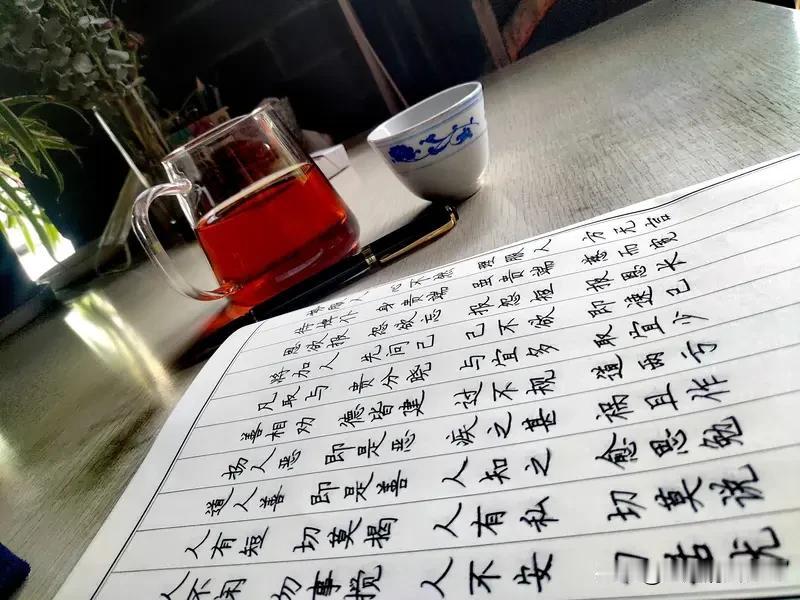 势服人 心不然 理服人 方无言
待婢仆 身贵端 虽贵端 慈而宽
恩欲报 怨欲忘 报怨短 报恩长
将加人 先问己 己不欲 即速已
凡取与 贵分晓 与宜多 取宜少
善相劝 德皆建 过不规 道两亏
扬人恶 即是恶 疾之甚 祸且作
道人善 即是善 人知之 愈思勉
人有短 切莫揭 人有私 切莫说
人不闲 勿事搅 人不安 勿话扰